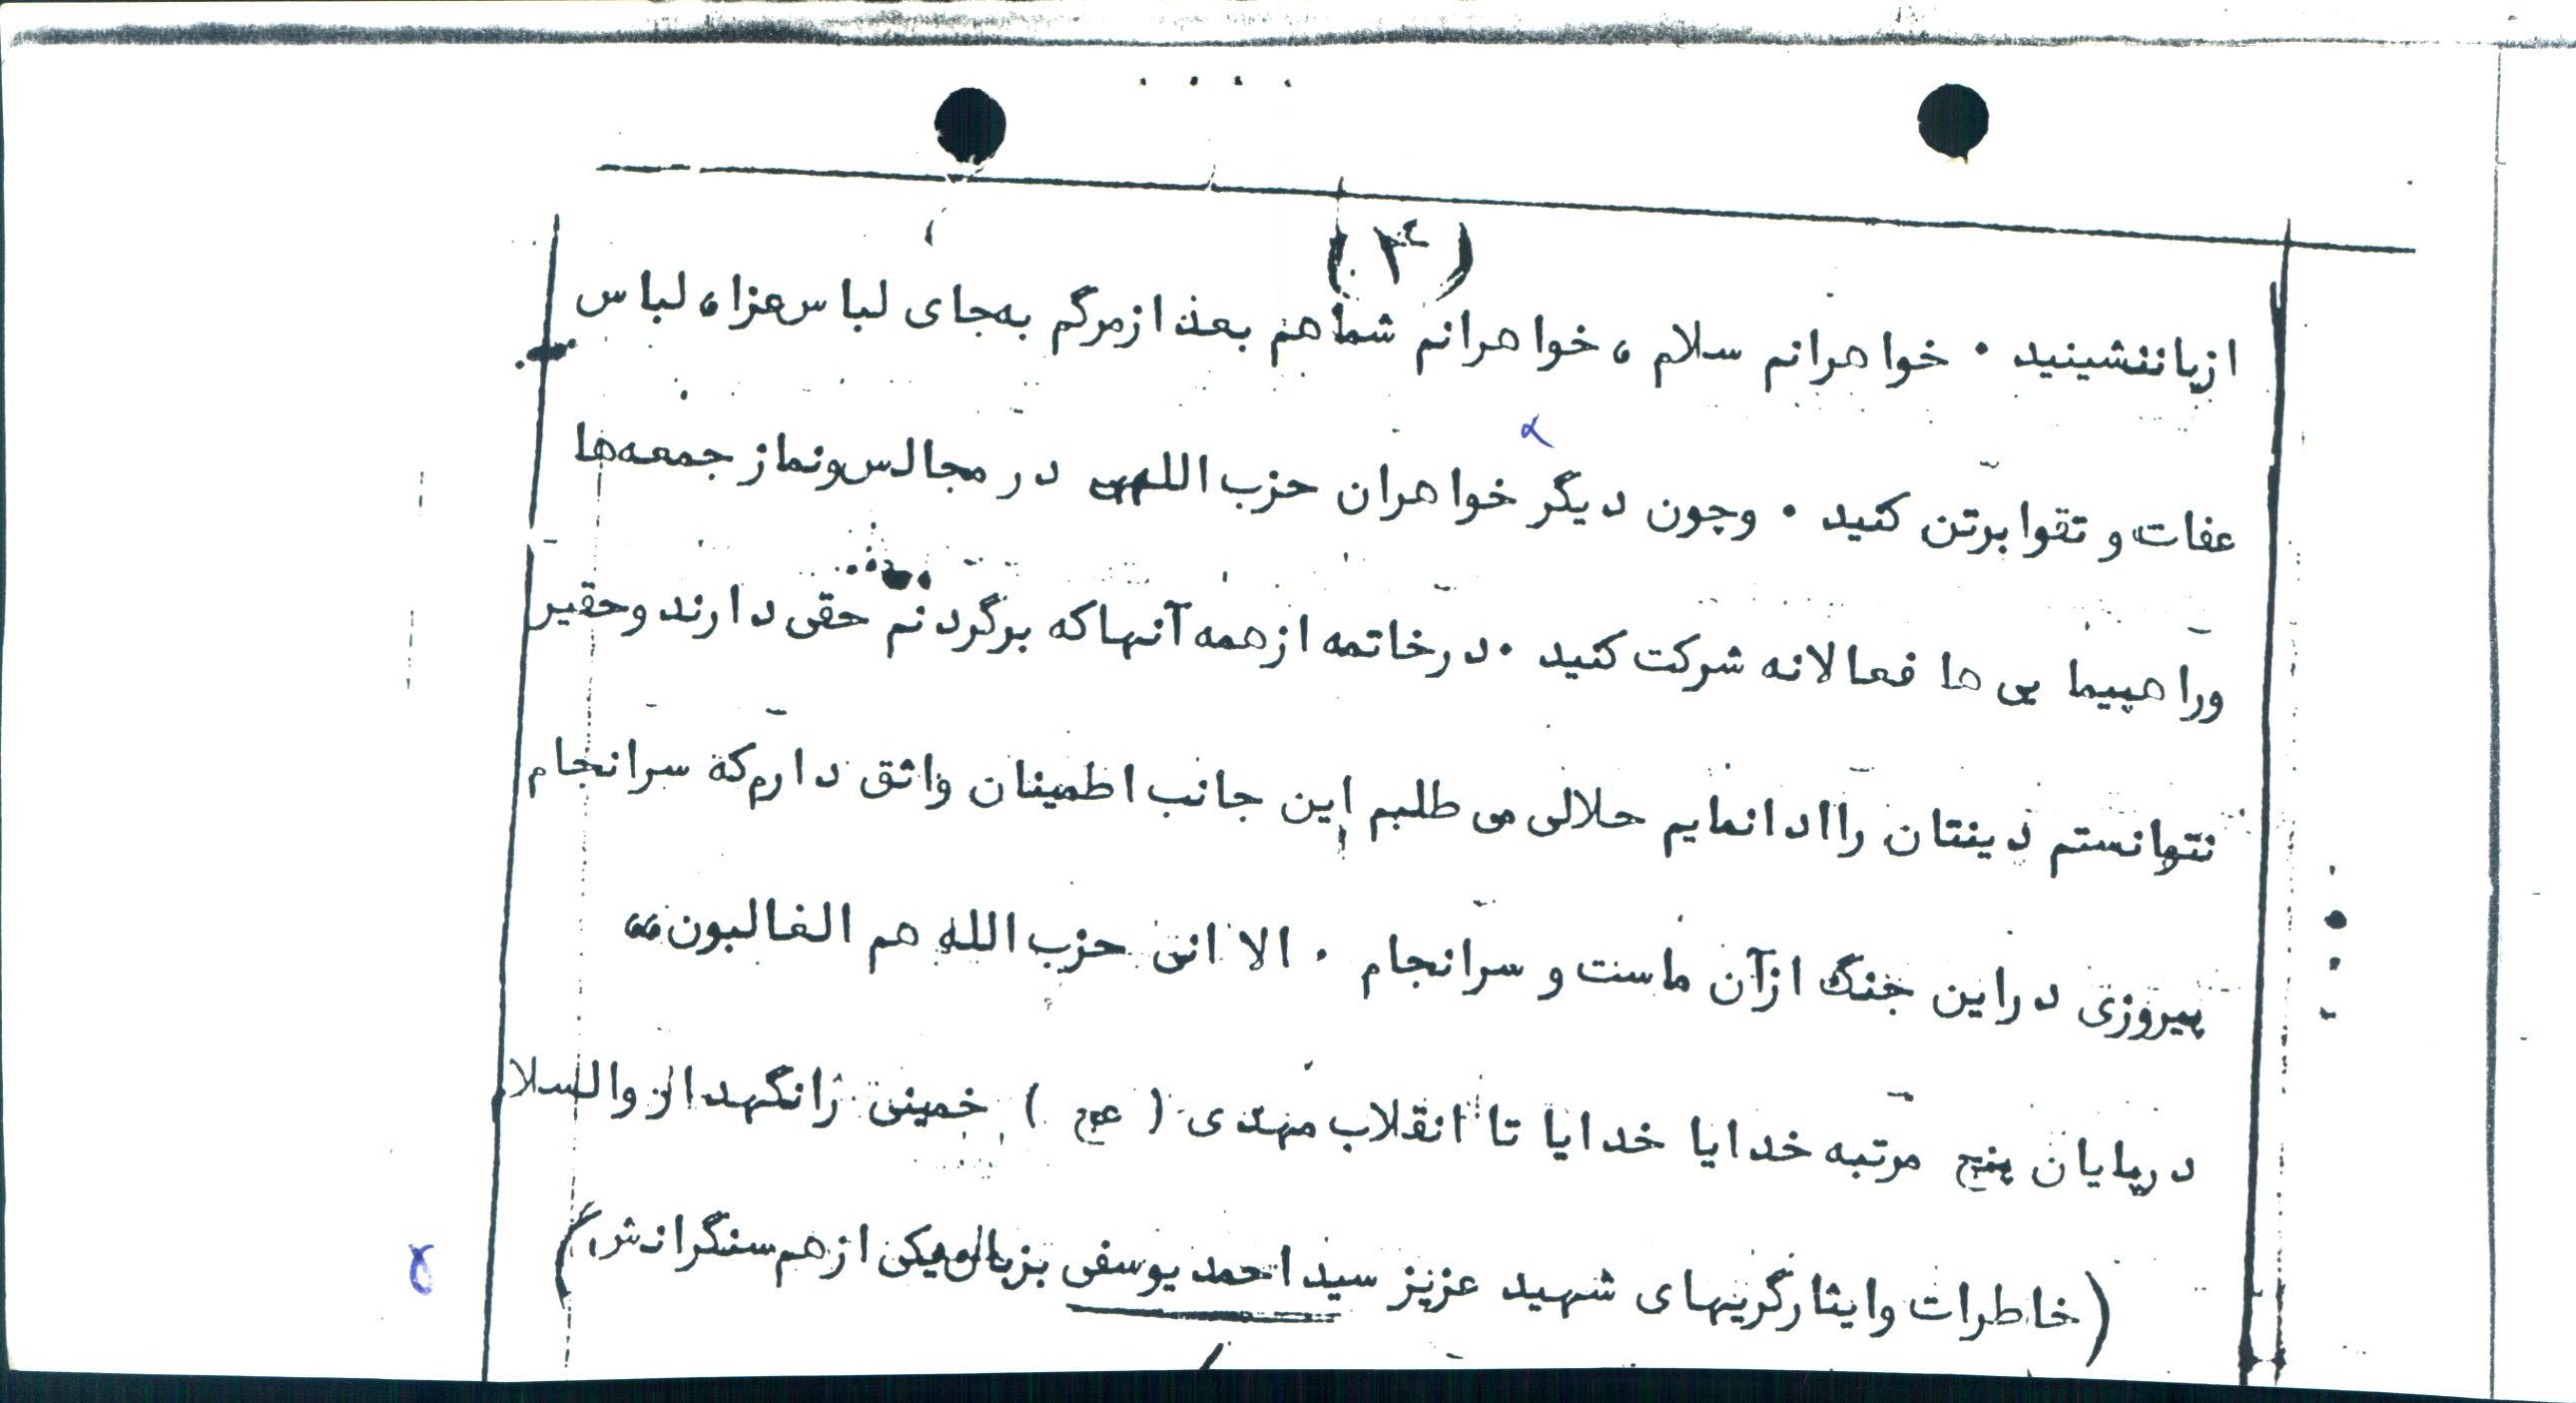 (۳)
ازپاننشینید ۰ خواهرانم سلام ، خواهرانم شماهم بعد ازمرگم به‌جای لباس‌عزا، لباس
عفات و تقوا برتن کنید ۰ وچون دیگر خواهران حزب اللهی در مجالس‌ونماز جمعه‌ها
وراهپیما یی ها فعالانه شرکت کنید ۰ درخاتمه ازهمه آنهاکه برگردنم حقی دارند وحقیر
نتوانستم دینتان راادانمایم حلالی می طلبم این جانب اطمینان واثق دارم‌که سرانجام
پیروزی دراین جنگ ازآن ماست و سرانجام ۰ الا ان حزب الله هم الغالبون،،
درپایان پنج مرتبه خدایا خدایا تا انقلاب مهدی ( عج ) خمینی رانگهدار والسلام
(خاطرات وایثارگریهای شهید عزیز سید احمد یوسفی بزبان یکی ازهم‌سنگرانش)
۵